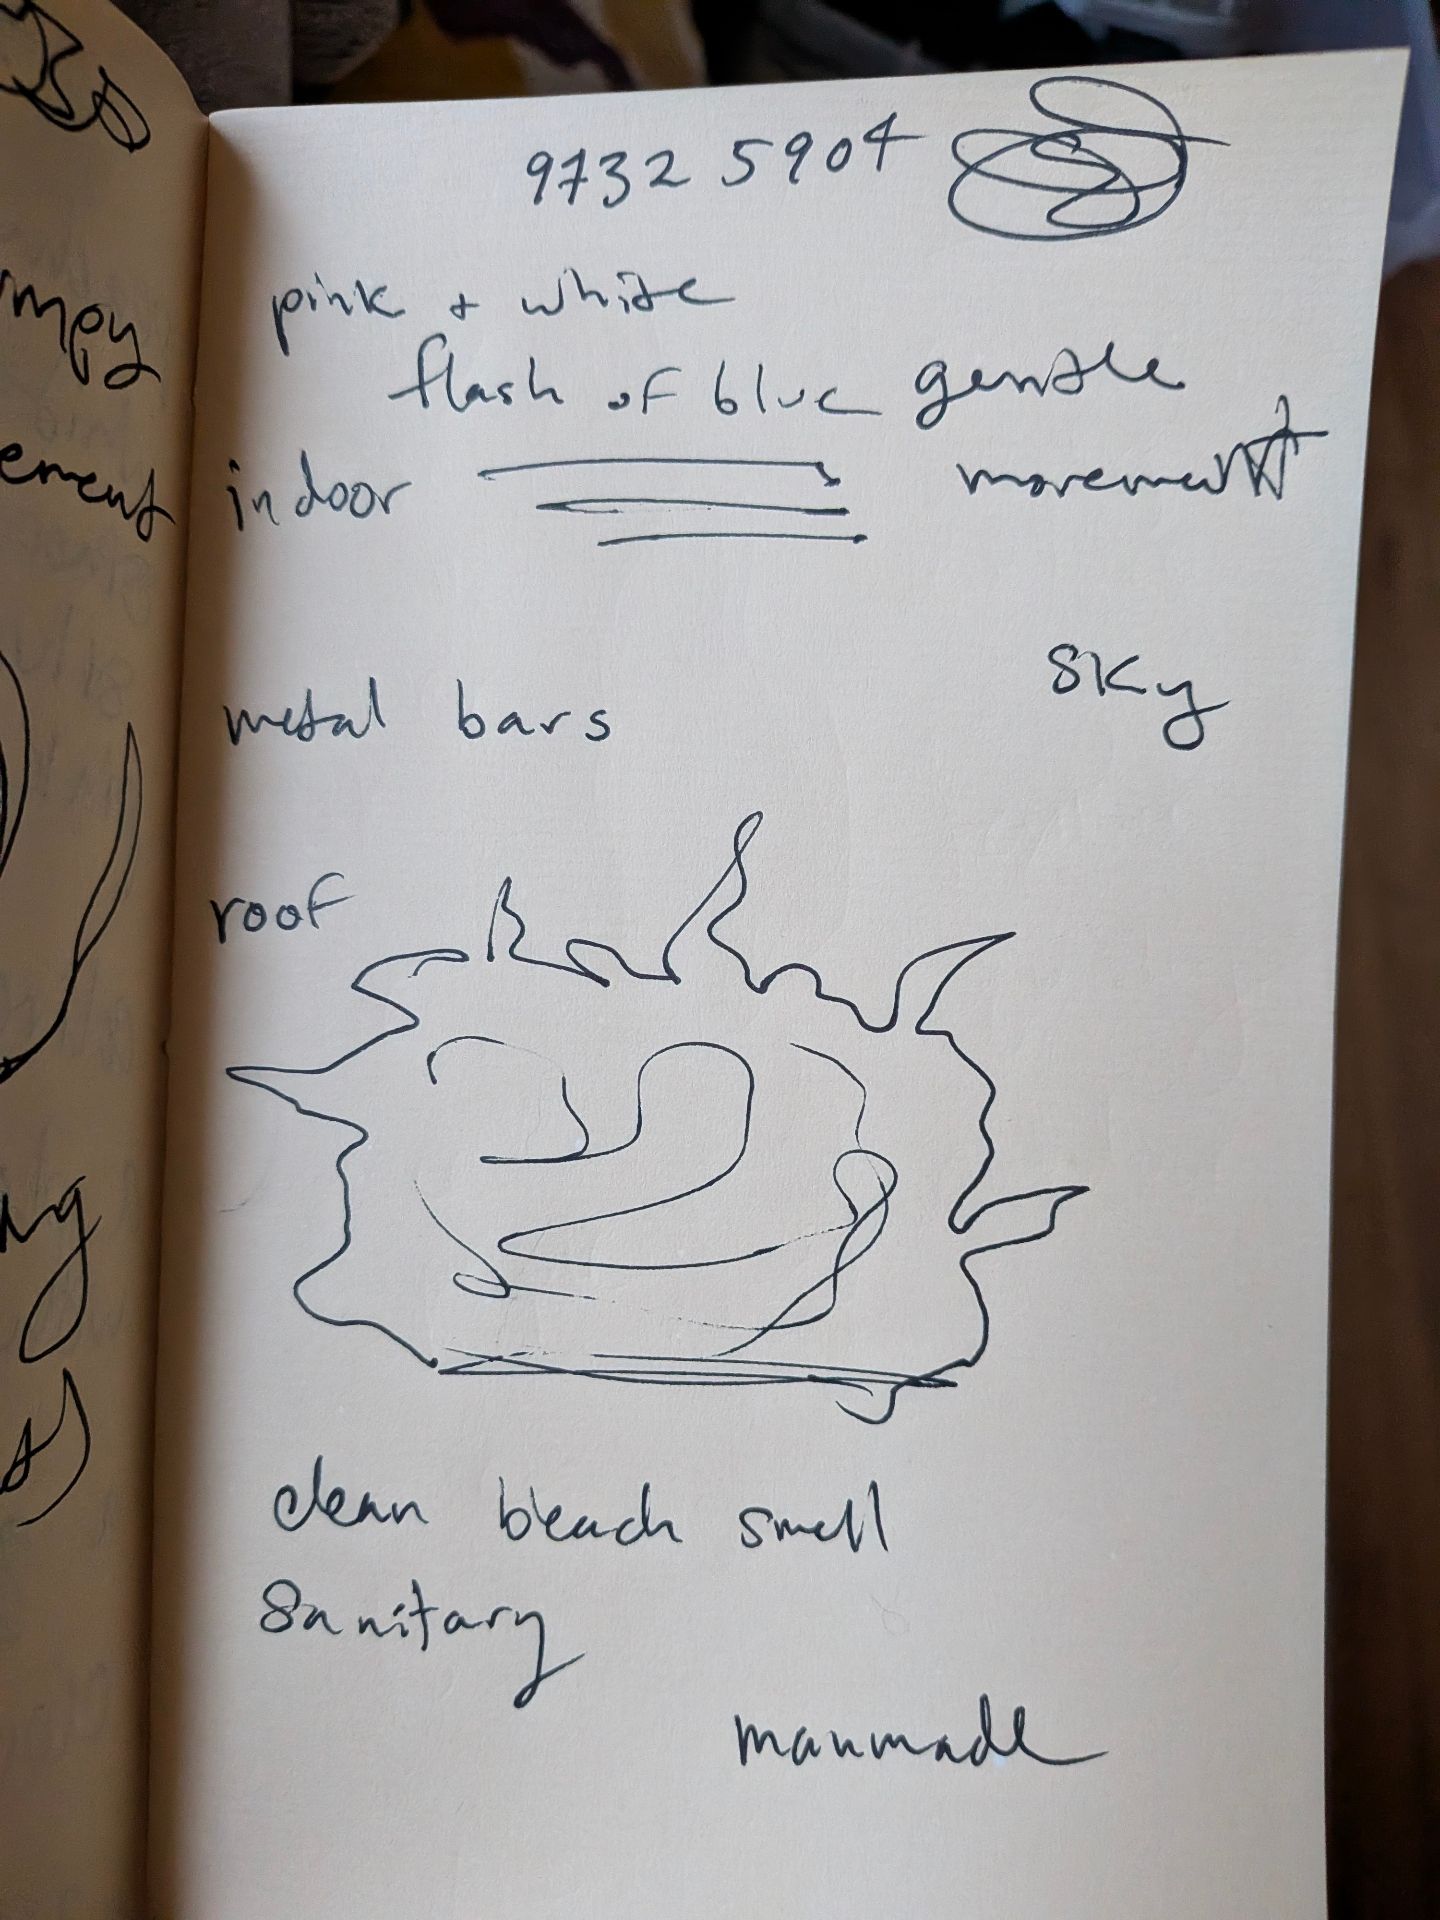 9732 5904
pink + white
flash of blue gentle
indoor movement
sky
metal bars
roof
clean bleach smell
sanitary
manmade
mpy
ement